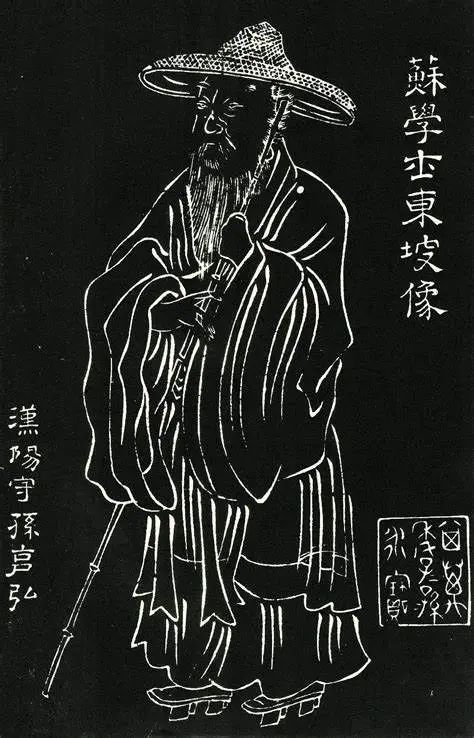 蘇學士東坡像
漢陽守孫克弘